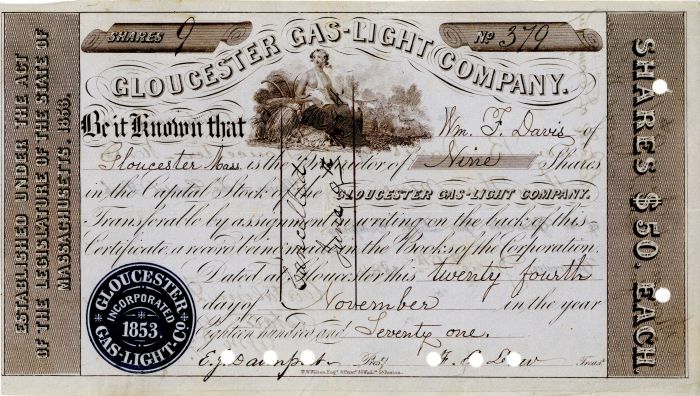 SHARES 9
No 379
GLOUCESTER GAS-LIGHT COMPANY.
Be it Known that Wm. F. Davis of
Gloucester Mass is the of Nine Shares
in the Capital Stock of the GLOUCESTER GAS-LIGHT COMPANY.
Transferable by assignment in writing on the back of this
Certificate a record being made in the Books of the Corporation.
Dated at Gloucester this twenty fourth
day of November in the year
Eighteen hundred and Seventy one.
E. J. Davenport Prest. Treasr
Cancelled
ESTABLISHED UNDER THE ACT
OF THE LEGISLATURE OF THE STATE OF
MASSACHUSETTS, 1853.
SHARES $50, EACH.
GLOUCESTER
INCORPORATED
1853
GAS-LIGHT-CO.